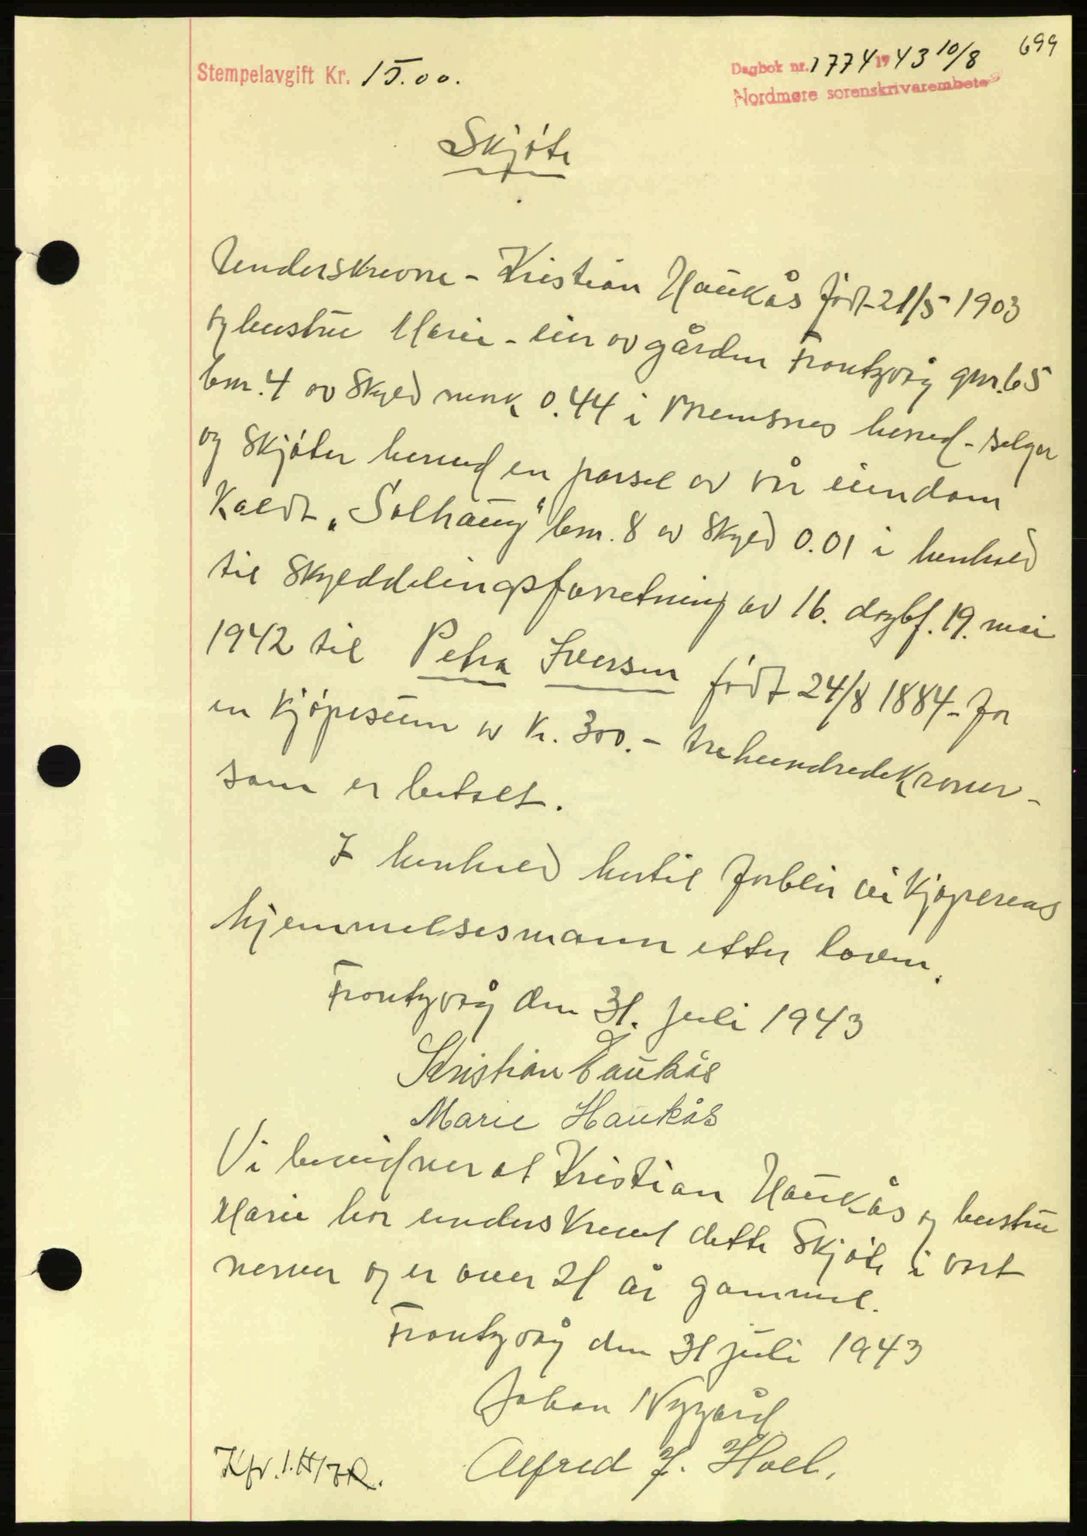 699
Stempelavgift Kr. 15.00.
Dagbok nr. 1774 1943 10/8
Nordmøre sorenskrivarembete
Skjøte
Underskrevne - Kristian Haukås født 21/5 1903
og hustru Marie - eier av gården Frantzvåg gnr. 65
bnr. 4 av skyld mark 0.44 i Bremsnes herred - selger
og skjøter herved en parsel av vår eiendom
kaldt „Solhaug" bnr. 8 av skyld 0.01 i henhold
til skylddelingsforretning av 16. dagbf. 19. mai
1942 til Petra Iversen født 24/8 1884 - for
en kjøpesum av kr. 300.- trehundredekroner -
som er betalt.
I henhold hertil forblir vi kjøperens
hjemmelsesmann etter loven.
Frantzvåg den 31. juli 1943
Kristian Haukås
Marie Haukås
Vi bevidner at Kristian Haukås og hustru
Marie har underskrevet dette skjøte i vort
nerver og er over 21 år gammel.
Frantzvåg den 31 juli 1943
Johan Nygård
Alfred J. Hoel.
Kfr.